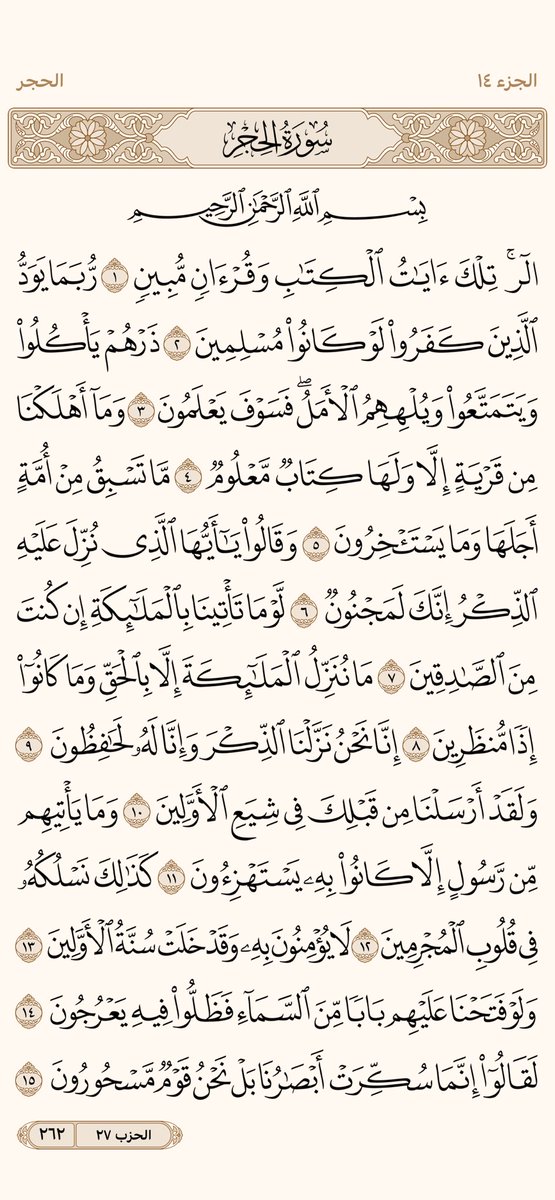 الجزء ١٤
الحجر
سُورَةُ الحِجْرِ
بِسْمِ ٱللَّهِ ٱلرَّحْمَٰنِ ٱلرَّحِيمِ
الٓرۚ تِلْكَ ءَايَٰتُ ٱلْكِتَٰبِ وَقُرْءَانٖ مُّبِينٖ ١ رُّبَمَا يَوَدُّ
ٱلَّذِينَ كَفَرُواْ لَوْ كَانُواْ مُسْلِمِينَ ٢ ذَرْهُمْ يَأْكُلُواْ
وَيَتَمَتَّعُواْ وَيُلْهِهِمُ ٱلْأَمَلُۖ فَسَوْفَ يَعْلَمُونَ ٣ وَمَآ أَهْلَكْنَا
مِن قَرْيَةٍ إِلَّا وَلَهَا كِتَابٞ مَّعْلُومٞ ٤ مَّا تَسْبِقُ مِنْ أُمَّةٍ
أَجَلَهَا وَمَا يَسْتَـْٔخِرُونَ ٥ وَقَالُواْ يَٰٓأَيُّهَا ٱلَّذِي نُزِّلَ عَلَيْهِ
ٱلذِّكْرُ إِنَّكَ لَمَجْنُونٞ ٦ لَّوْمَا تَأْتِينَا بِٱلْمَلَٰٓئِكَةِ إِن كُنتَ
مِنَ ٱلصَّٰدِقِينَ ٧ مَا نُنَزِّلُ ٱلْمَلَٰٓئِكَةَ إِلَّا بِٱلْحَقِّ وَمَا كَانُوٓاْ
إِذٗا مُّنظَرِينَ ٨ إِنَّا نَحْنُ نَزَّلْنَا ٱلذِّكْرَ وَإِنَّا لَهُۥ لَحَٰفِظُونَ ٩
وَلَقَدْ أَرْسَلْنَا مِن قَبْلِكَ فِي شِيَعِ ٱلْأَوَّلِينَ ١٠ وَمَا يَأْتِيهِم
مِّن رَّسُولٍ إِلَّا كَانُواْ بِهِۦ يَسْتَهْزِءُونَ ١١ كَذَٰلِكَ نَسْلُكُهُۥ
فِي قُلُوبِ ٱلْمُجْرِمِينَ ١٢ لَا يُؤْمِنُونَ بِهِۦ وَقَدْ خَلَتْ سُنَّةُ ٱلْأَوَّلِينَ ١٣
وَلَوْ فَتَحْنَا عَلَيْهِم بَابٗا مِّنَ ٱلسَّمَآءِ فَظَلُّواْ فِيهِ يَعْرُجُونَ ١٤
لَقَالُوٓاْ إِنَّمَا سُكِّرَتْ أَبْصَٰرُنَا بَلْ نَحْنُ قَوْمٞ مَّسْحُورُونَ ١٥
الحزب ٢٧
٢٦٢